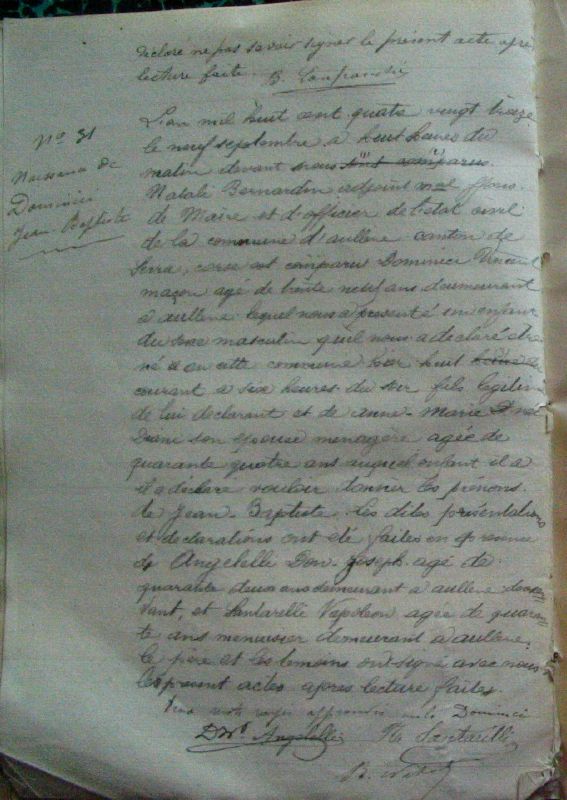 déclaré ne pas savoir signer le présent acte après
lecture faite.
No 31
Naissance de
Dominici
Jean Baptiste
L'an mil huit cent quatre vingt treize
le neuf septembre à huit heures du
matin devant nous est comparu
Natale Bernardin adjoint
de Maire et d'officier de l'état civil
de la commune d'aullene canton de
Serra, corse est comparu Dominici Vincent
maçon agé de trente neuf ans demeurant
à aullene lequel nous a présenté un enfant
du sexe masculin qu'il nous a déclaré être
né en cette commune hier huit
courant à six heures du soir fils legitime
de lui declarant et de anne-Marie
son épouse menagère agée de
quarante quatre ans auquel enfant il a
il a déclaré vouloir donner les prénoms
de Jean-Baptiste. Les dites présentations
et declarations ont été faites en presence
de Angelelli Don Joseph agé de
quarante deux ans demeurant à aullene
et Santarelli Napoleon agée de quaran
te ans menuisier demeurant à aullene;
le père et les temoins ont signé avec nous
le présent actes après lecture faites.
Dominici
Angelelli Santarelli